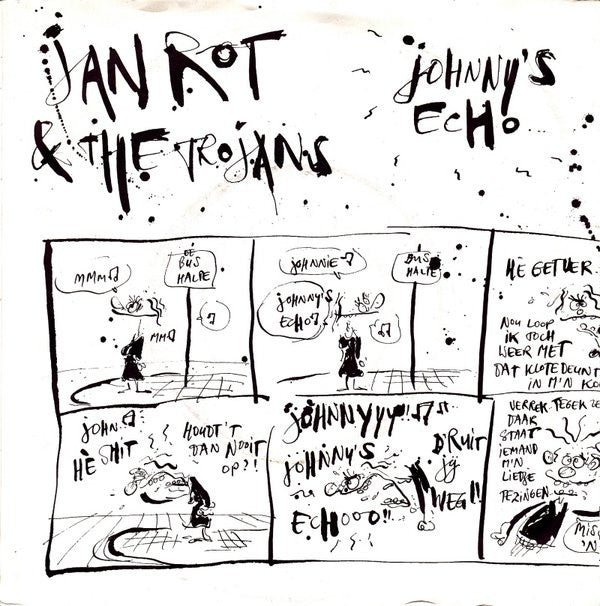 JAN ROT
& THE TROJANS
JOHNNY'S
ECHO
MMM♫
DE
BUS
HALTE
MM♫
♫
JOHNNIE ♫
JOHNNY'S
ECHO♫
BUS
HALTE
♫
HÈ GETVER
NOU LOOP
IK TOCH
WEER MET
DAT KLOTE DEUNT
IN M'N KO
JOHN♫
HÈ SHIT
HOUDT 'T
DAN NOOIT
OP?!
JOHNNYYY!! ♫
JOHNNY'S
ECHOOO!!
D'RUIT
JG
WEG!!
VERREK TEGEK ZE
DAAR
STAAT
IEMAND
M'N
LIETJE
TEZINGEN
MIS
'N